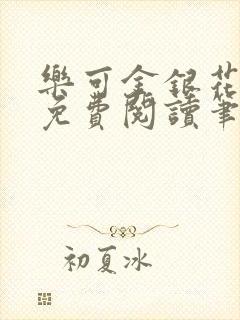 樂可金銀花
免費閱讀筆
初夏冰